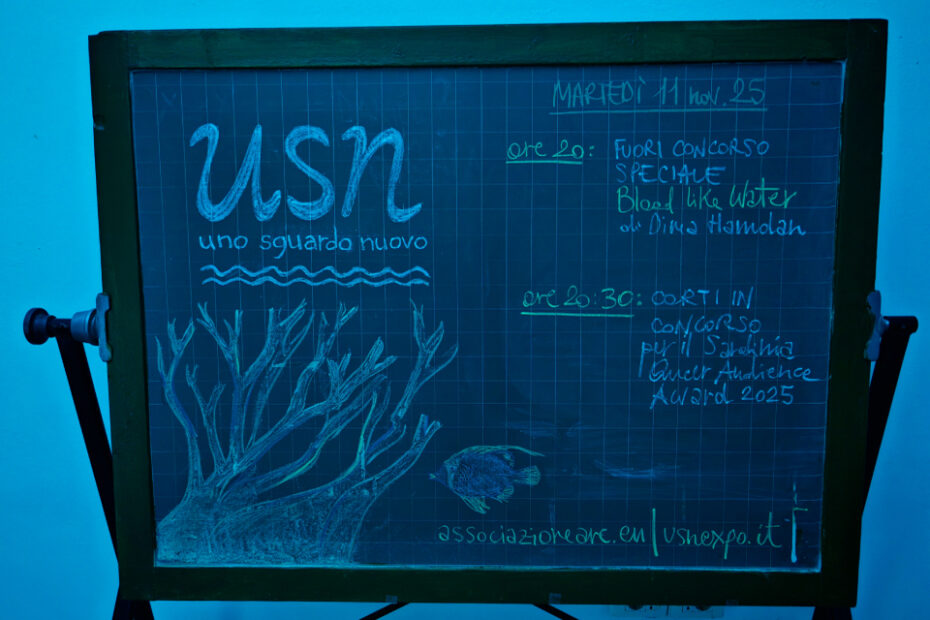 usn
uno sguardo nuovo
MARTEDÌ 11 nov. 25
ore 20: FUORI CONCORSO
SPECIALE
Blood like Water
di Dima Hamdan
ore 20:30: CORTI IN
CONCORSO
per il Sardinia
Queer Audience
Award 2025
associazionearc.eu | usnexpo.it